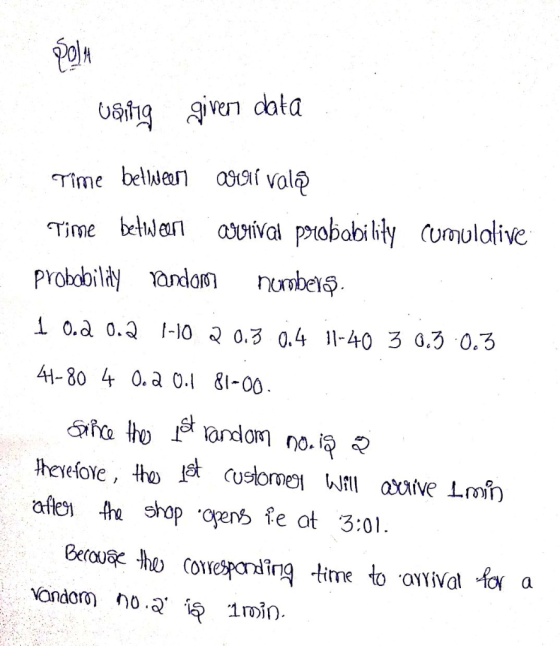 Soln
Using given data
Time between arrivals
Time between arrival probability cumulative
probability random numbers.
1 0.2 0.2 1-10 2 0.3 0.4 11-40 3 0.3 0.3
41-80 4 0.2 0.1 81-00.
Since the 1st random no. is 2
therefore, the 1st customer will arrive 1min
after the shop opens i.e at 3:01.
Because the corresponding time to arrival for a
random no. 2 is 1min.